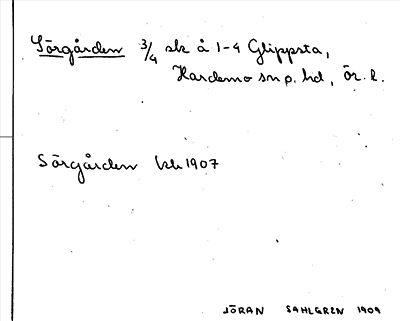 Sörgården 3/4 sk å 1-4 Glippsta,
Hardemo sn o. hd, Ör. l.
Sörgården kb 1907
JÖRAN SAHLGREN 1909